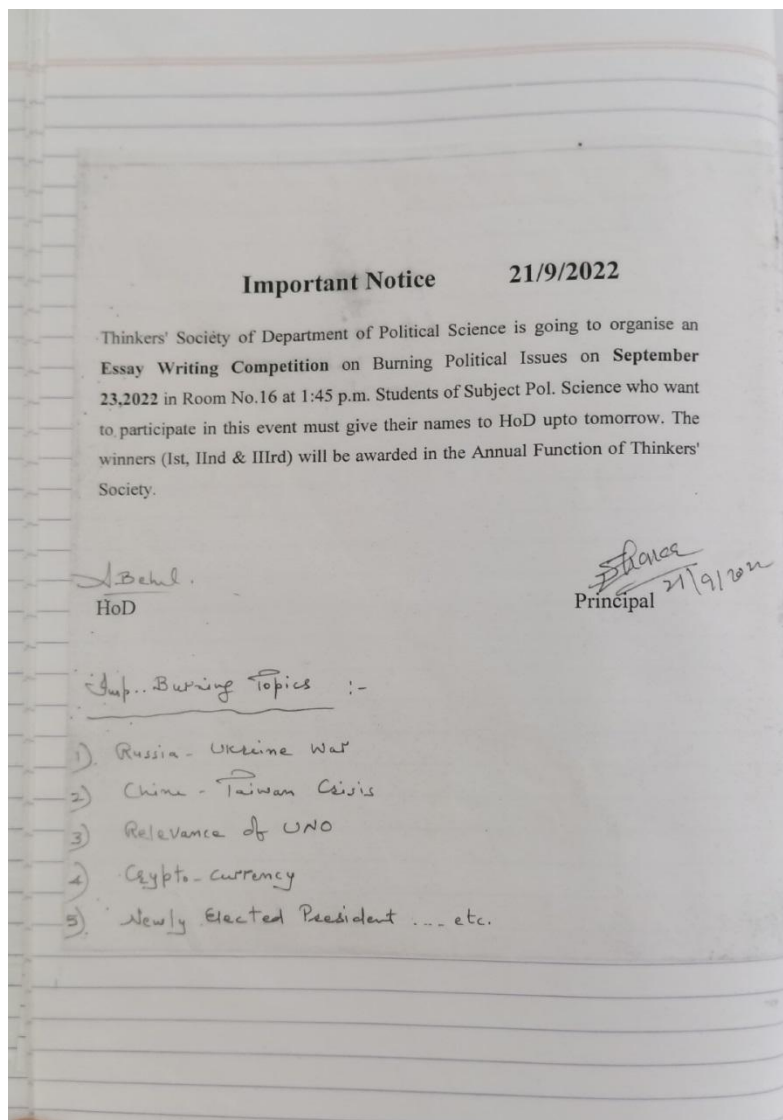 Important Notice 21/9/2022
Thinkers' Society of Department of Political Science is going to organise an
Essay Writing Competition on Burning Political Issues on September
23,2022 in Room No.16 at 1:45 p.m. Students of Subject Pol. Science who want
to participate in this event must give their names to HoD upto tomorrow. The
winners (Ist, IInd & IIIrd) will be awarded in the Annual Function of Thinkers'
Society.
HoD
Principal 21/9/2022
Imp.. Burning Topics :-
1). Russia - Ukraine War
2) China - Taiwan Crisis
3) Relevance of UNO
4) Crypto-currency
5). Newly Elected President .... etc.